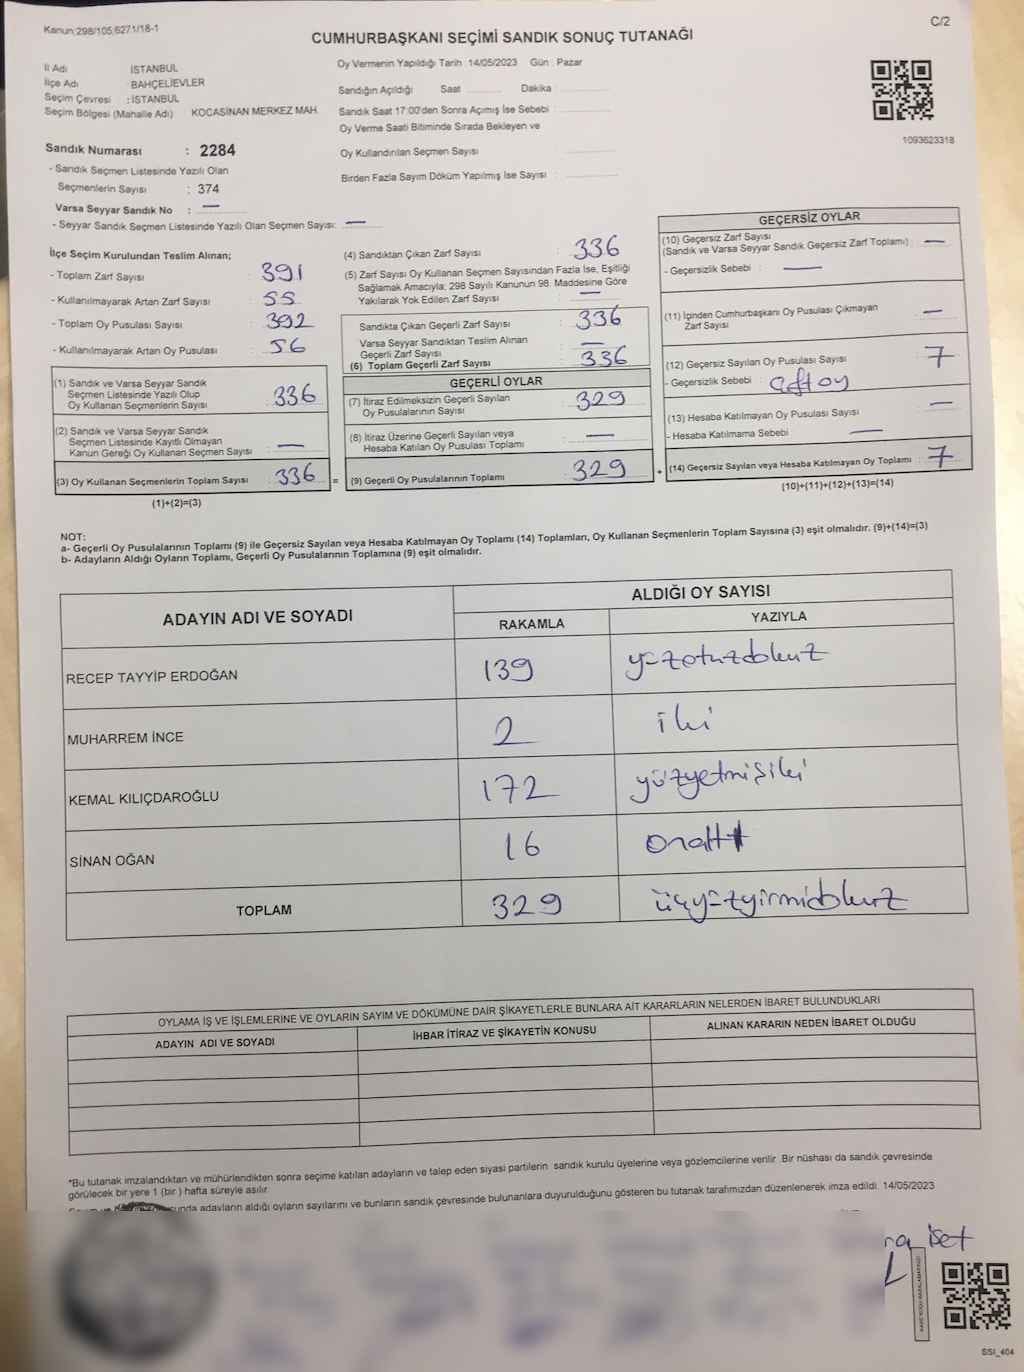 Kanun:298/105,6271/18-1
C/2
CUMHURBAŞKANI SEÇİMİ SANDIK SONUÇ TUTANAĞI
İl Adı İSTANBUL
İlçe Adı BAHÇELİEVLER
Seçim Çevresi : İSTANBUL
Seçim Bölgesi (Mahalle Adı) KOCASİNAN MERKEZ MAH.
Sandık Numarası : 2284
- Sandık Seçmen Listesinde Yazılı Olan
Seçmenlerin Sayısı : 374
Varsa Seyyar Sandık No : —
- Seyyar Sandık Seçmen Listesinde Yazılı Olan Seçmen Sayısı: —
Oy Vermenin Yapıldığı Tarih :14/05/2023 Gün : Pazar
Sandığın Açıldığı Saat Dakika :
Sandık Saat 17:00'den Sonra Açımış İse Sebebi :
Oy Verme Saati Bitiminde Sırada Bekleyen ve
Oy Kullandırılan Seçmen Sayısı :
Birden Fazla Sayım Döküm Yapılmış İse Sayısı :
1093623318
İlçe Seçim Kurulundan Teslim Alınan;
- Toplam Zarf Sayısı : 391
- Kullanılmayarak Artan Zarf Sayısı : 55
- Toplam Oy Pusulası Sayısı : 392
- Kullanılmayarak Artan Oy Pusulası : 56
(1) Sandık ve Varsa Seyyar Sandık
Seçmen Listesinde Yazılı Olup
Oy Kullanan Seçmenlerin Sayısı : 336
(2) Sandık ve Varsa Seyyar Sandık
Seçmen Listesinde Kayıtlı Olmayan
Kanun Gereği Oy Kullanan Seçmen Sayısı : —
(3) Oy Kullanan Seçmenlerin Toplam Sayısı : 336 =
(1)+(2)=(3)
(4) Sandıktan Çıkan Zarf Sayısı : 336
(5) Zarf Sayısı Oy Kullanan Seçmen Sayısından Fazla İse, Eşitliği
Sağlamak Amacıyla; 298 Sayılı Kanunun 98. Maddesine Göre
Yakılarak Yok Edilen Zarf Sayısı : —
Sandıkta Çıkan Geçerli Zarf Sayısı : 336
Varsa Seyyar Sandıktan Teslim Alınan
Geçerli Zarf Sayısı : —
(6) Toplam Geçerli Zarf Sayısı : 336
GEÇERLİ OYLAR
(7) İtiraz Edilmeksizin Geçerli Sayılan
Oy Pusulalarının Sayısı : 329
(8) İtiraz Üzerine Geçerli Sayılan veya
Hesaba Katılan Oy Pusulası Toplamı : —
(9) Geçerli Oy Pusulalarının Toplamı : 329 +
GEÇERSİZ OYLAR
(10) Geçersiz Zarf Sayısı
(Sandık ve Varsa Seyyar Sandık Geçersiz Zarf Toplamı) : —
- Geçersizlik Sebebi : —
(11) İçinden Cumhurbaşkanı Oy Pusulası Çıkmayan
Zarf Sayısı : —
(12) Geçersiz Sayılan Oy Pusulası Sayısı : 7
- Geçersizlik Sebebi : çift oy
(13) Hesaba Katılmayan Oy Pusulası Sayısı : —
- Hesaba Katılmama Sebebi : —
(14) Geçersiz Sayılan veya Hesaba Katılmayan Oy Toplamı : 7
(10)+(11)+(12)+(13)=(14)
NOT:
a- Geçerli Oy Pusulalarının Toplamı (9) ile Geçersiz Sayılan veya Hesaba Katılmayan Oy Toplamı (14) Toplamları, Oy Kullanan Seçmenlerin Toplam Sayısına (3) eşit olmalıdır. (9)+(14)=(3)
b- Adayların Aldığı Oyların Toplamı, Geçerli Oy Pusulalarının Toplamına (9) eşit olmalıdır.
ADAYIN ADI VE SOYADI ALDIĞI OY SAYISI
RAKAMLA YAZIYLA
RECEP TAYYİP ERDOĞAN 139 yüzotuzdokuz
MUHARREM İNCE 2 iki
KEMAL KILIÇDAROĞLU 172 yüzyetmişiki
SİNAN OĞAN 16 onaltı
TOPLAM 329 üçyüzyirmidokuz
OYLAMA İŞ VE İŞLEMLERİNE VE OYLARIN SAYIM VE DÖKÜMÜNE DAİR ŞİKAYETLERLE BUNLARA AİT KARARLARIN NELERDEN İBARET BULUNDUKLARI
ADAYIN ADI VE SOYADI İHBAR İTİRAZ VE ŞİKAYETİN KONUSU ALINAN KARARIN NEDEN İBARET OLDUĞU
*Bu tutanak imzalandıktan ve mühürlendikten sonra seçime katılan adayların ve talep eden siyasi partilerin sandık kurulu üyelerine veya gözlemcilerine verilir. Bir nüshası da sandık çevresinde
görülecek bir yere 1 (bir ) hafta süreyle asılır.
adayların aldığı oyların sayılarını ve bunların sandık çevresinde bulunanlara duyurulduğunu gösteren bu tutanak tarafımızdan düzenlenerek imza edildi. 14/05/2023
SSI_404